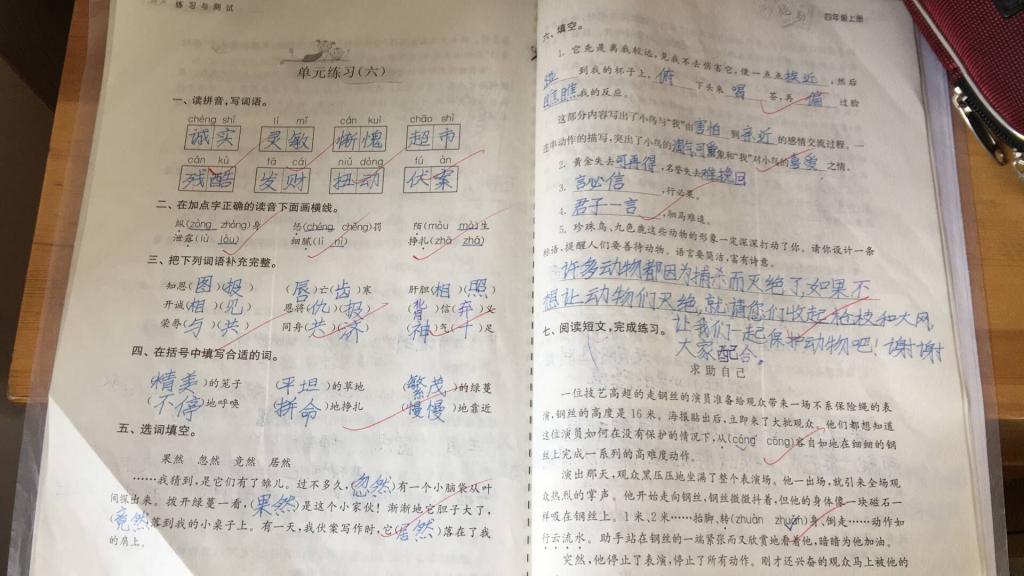 练习与测试
单元练习(六)
一、读拼音,写词语。
chéng shí lí mǐn cán kuì chāo shì
诚实 灵敏 惭愧 超市
cán kù fā cái niǔ dòng fú àn
残酷 发财 扭动 伏案
二、在加点字正确的读音下面画横线。
纵(zòng zhòng)身 惩(chéng chěng)罚 陌(mò mò)生
泄露(lù lòu) 细腻(lì nì) 挣扎(zhā zhá)
三、把下列词语补充完整。
知恩(图)(报) (唇)亡(齿)寒 肝胆(相)(照)
开诚(相)(见) 恩将(仇)(报) (背)信(弃)义
荣辱(与)(共) 同舟(共)(济) (神)气(十)足
四、在括号中填写合适的词。
(精美)的笼子 (平坦)的草地 (繁茂)的绿蔓
(不停)地呼唤 (拼命)地挣扎 (慢慢)地靠近
五、选词填空。
果然 忽然 竟然 居然
……我猜到,是它们有了雏儿。过不多久,(忽然)有一个小脑袋从叶
间探出来。拨开绿蔓一看,(果然)是这个小家伙!渐渐地它胆子大了,
(竟然)落到我的小桌子上。有一天,我伏案写作时,它(居然)落在了我
的肩上。
四年级上册
六、填空。
1. 它先是离我较远,见我不去伤害它,便一点点挨近,然后
蹦到我的杯子上,俯下头来喝茶,再偏过脸
瞧瞧我的反应。
这部分内容写出了小鸟与“我”由害怕到亲近的感情交流过程,一
连串动作的描写,突出了小鸟的淘气可爱形象和“我”对小鸟的喜爱之情。
2. 黄金失去可再得,名誉失去难挽回
3. 言必信,行必果。
4. 君子一言,驷马难追。
5. 珍珠鸟、九色鹿这些动物的形象一定深深打动了你。请你设计一条
标语,提醒人们要善待动物。语言要简洁,富有诗意。
许多动物都因为捕杀而灭绝了,如果不
想让动物们灭绝,就请您们收起枪枝和大网,
让我们一起保护动物吧!谢谢
大家配合。
七、阅读短文,完成练习。
求助自己
一位技艺高超的走钢丝的演员准备给观众带来一场不系保险绳的表
演,钢丝的高度是16米。海报贴出后,立即来了大批观众。他们都想知道
这位演员如何在没有保护的情况下,从(cóng cōng)容自如地在细细的钢
丝上完成一系列的高难度动作。
演出那天,观众黑压压地坐满了整个表演场。他一出场,就引来全场观
众热烈的掌声。他开始走向钢丝,钢丝微微抖着,但他的身体像一块磁石一
样吸在钢丝上。1米、2米……抬脚、转(zhuàn zhuǎn)身、倒走……动作如
行云流水。助手站在钢丝的一端紧张而又欣赏地看着他,暗暗为他加油。
突然,他停止了表演,停止了所有动作。刚才还兴奋的观众马上被他的